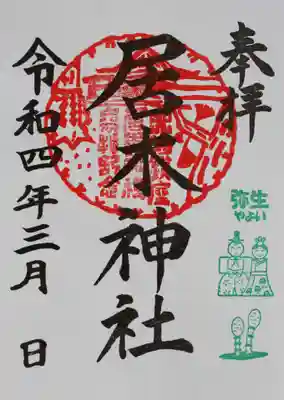 奉拝
弥生
やよい
居木神社
令和四年三月 日